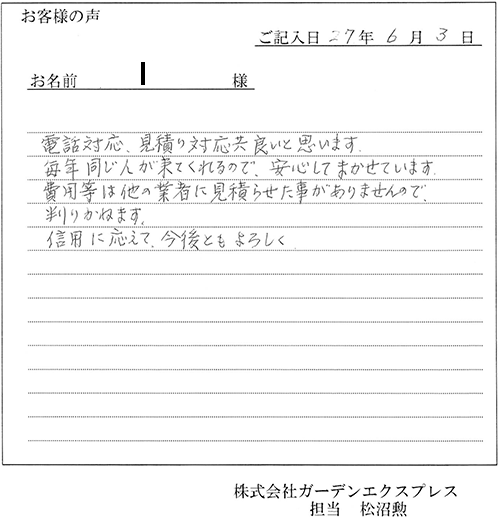 お客様の声
ご記入日 27年 6月 3日
お名前 I 様
電話対応、見積り対応共良いと思います。
毎年同じ人が来てくれるので、安心してまかせています。
費用等は他の業者に見積らせた事がありませんので、
判りかねます。
信用に応えて、今後ともよろしく
株式会社ガーデンエクスプレス
担当 松沼勲